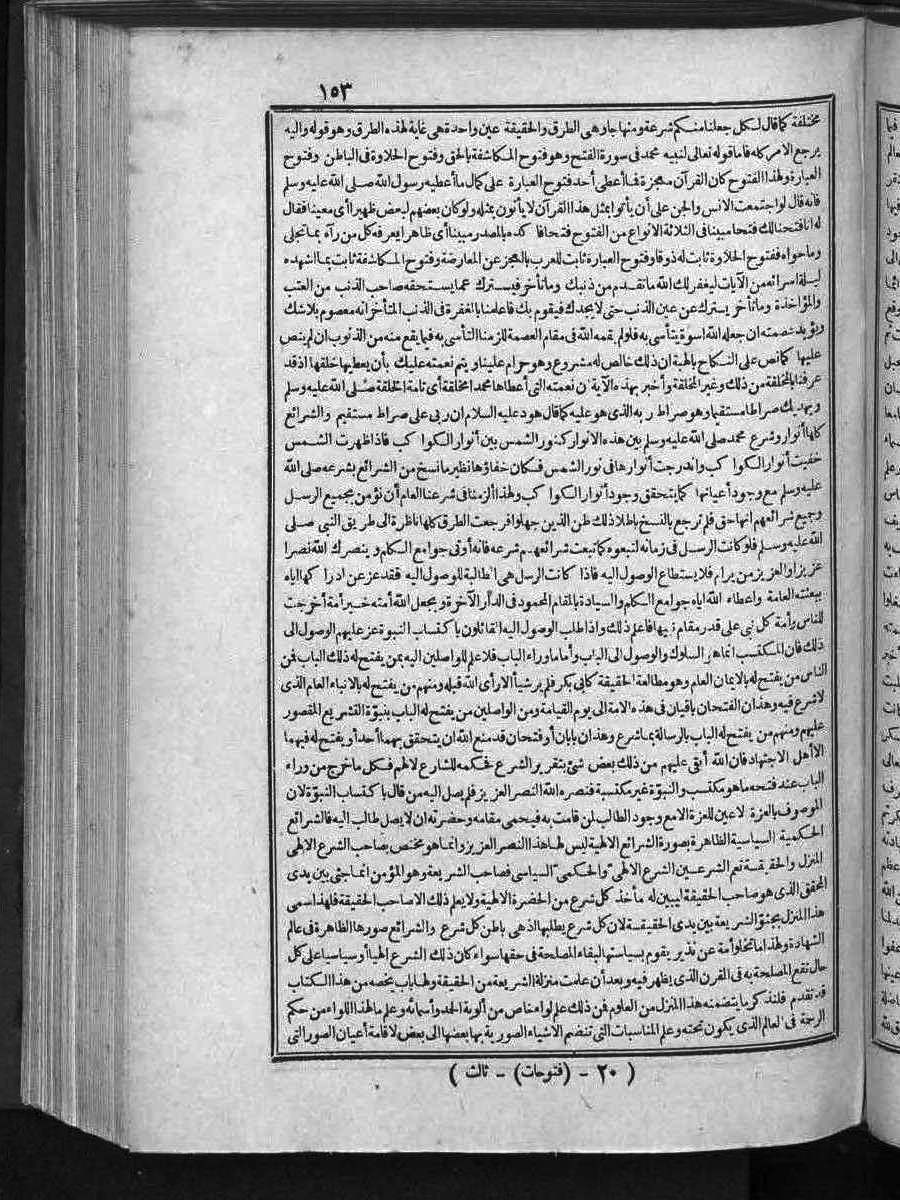 ١٥٣
مختلفة كما قال لكل جعلنا منكم شرعة ومنهاجا وهى الطرق والحقيقة عين واحدة هى غاية لهذه الطرق وهو قوله واليه
يرجع الامر كله فاما قوله تعالى لنبيه محمد فى سورة الفتح وهو فتوح المكاشفة بالحق وفتوح الحلاوة فى الباطن وفتوح
العبارة ولهذا الفتوح كان القرآن معجزة فما أعطى أحد فتوح العبارة على كمال ما أعطيه رسول الله صلى الله عليه وسلم
فانه قال لو اجتمعت الانس والجن على أن يأتوا بمثل هذا القرآن لا يأتون بمثله ولو كان بعضهم لبعض ظهيرا أى معينا فقال
له انا فتحنا لك فتحا مبينا فى الثلاثة الانواع من الفتوح فتحا فأكده بالمصدر مبينا أى ظاهرا يعرفه كل من رآه بما تجلى
وما حواه ففتوح الحلاوة ثابت له ذوقا وفتوح العبارة ثابت للعرب بالعجز عن المعارضة وفتوح المكاشفة ثابت بما أشهده
ليلة اسرائه من الآيات ليغفر لك الله ما تقدم من ذنبك وما تأخر فيسترك عما يستحقه صاحب الذنب من العتب
والمؤاخذة وما تأخر يسترك عن عين الذنب حتى لا يجدك فيقوم بك فاعلمنا بالمغفرة فى الذنب المتأخر انه معصوم بلا شك
ويؤيد عصمته ان جعله الله اسوة يتأسى به فلو لم يقمه الله فى مقام العصمة للزمنا التأسى به فيما يقع منه من الذنوب ان لم ينص
عليها كما نص على النكاح بالهبة ان ذلك خالص له مشروع وهو حرام علينا ويتم نعمته عليك بأن يعطيها خلقها اذ قد
عرفنا بالمخلقة من ذلك وغير المخلقة وأخبر بهذه الآية ان نعمته التى أعطاها محمدا مخلقة أى تامة الخلقة صلى الله عليه وسلم
ويهديك صراطا مستقيما وهو صراط ربه الذى هو عليه كما قال هود عليه السلام ان ربى على صراط مستقيم والشرائع
كلها أنوار وشرع محمد صلى الله عليه وسلم بين هذه الانوار كنور الشمس بين أنوار الكواكب فاذا ظهرت الشمس
خفيت أنوار الكواكب واندرجت أنوارها فى نور الشمس فكان خفاؤها نظير ما نسخ من الشرائع بشرعه صلى الله
عليه وسلم مع وجود أعيانها كما يتحقق وجود أنوار الكواكب ولهذا ألزمنا فى شرعنا العام أن نؤمن بجميع الرسل
وجميع شرائعهم انها حق فلم ترجع بالنسخ باطلا ذلك ظن الذين جهلوا فرجعت الطرق كلها ناظرة الى طريق النبى صلى
الله عليه وسلم فلو كانت الرسل فى زمانه لتبعوه كما تبعت شرائعهم شرعه فانه أوتى جوامع الكلم وينصرك الله نصرا
عزيزا والعزيز من يرام فلا يستطاع الوصول اليه فاذا كانت الرسل هى الطالبة للوصول اليه فقد عز عن ادراكها اياه
ببعثته العامة واعطاء الله اياه جوامع الكلم والسيادة بالمقام المحمود فى الدار الآخرة وبجعل الله أمته خير أمة أخرجت
للناس وأمة كل نبى على قدر مقام نبيها فاعلم ذلك واذا طلب الوصول اليه القائلون باكتساب النبوة عز عليهم الوصول الى
ذلك فان المكتسب انما هو السلوك والوصول الى الباب وأما ما وراء الباب فلا علم للواصلين اليه بمن يفتح له ذلك الباب فمن
الناس من يفتح له بالايمان العام وهو مطالعة الحقيقة كأبى بكر فلم ير شيأ الا رأى الله قبله ومنهم من يفتح له بالانباء العام الذى
لا شرع فيه وهذان الفتحان باقيان فى هذه الامة الى يوم القيامة ومن الواصلين من يفتح له الباب بنبوة التشريع المقصور
عليهم ومنهم من يفتح له الباب بالرسالة بما شرع وهذان بابان أو فتحان قد منع الله ان يتحقق بهما أحد أو يفتح له فيهما
الا أهل الاجتهاد فان الله أبقى عليهم من ذلك بعض شئ بتقرير الشرع فحكمه للشارع لا لهم فكل ما خرج من وراء
الباب عند فتحه ما هو مكتسب والنبوة غير مكتسبة فنصره الله النصر العزيز فلم يصل اليه من قال باكتساب النبوة لان
الموصوف بالعزة لا عين للعزة الا مع وجود الطالب لمن قامت به فيحمى مقامه وحضرته ان لا يصل طالب اليه فالشرائع
الحكمية السياسية الظاهرة بصورة الشرائع الالهية ليس لها هذا النصر العزيز وانما هو مختص بصاحب الشرع الالهى
المنزل والحقيقة تعم الشرعين الشرع الالهى والحكمى السياسى فصاحب الشريعة وهو المؤمن انما جثى بين يدى
المحقق الذى هو صاحب الحقيقة ليبين له مأخذ كل شرع من الحضرة الالهية ولا يعلم ذلك الا صاحب الحقيقة فلهذا سمى
هذا المنزل بجثو الشريعة بين يدى الحقيقة لان كل شرع يطلبها اذ هى باطن كل شرع والشرائع صورها الظاهرة فى عالم
الشهادة ولهذا ما تخلو أمة عن نذير يقوم بسياستها لبقاء المصلحة فى حقها سواء كان ذلك الشرع الهيا أو سياسيا على كل
حال تقع المصلحة به فى القرن الذى يظهر فيه وبعد أن علمت منزلة الشريعة من الحقيقة ولها باب يخصه من هذا الكتاب
قد تقدم فلنذكر ما يتضمنه هذا المنزل من العلوم فمن ذلك علم لواء خاص من ألوية الحمد وأسمائه وعلم ما لهذا اللواء من حكم
الرحمة فى العالم الذى يكون تحته وعلم المناسبات التى تنضم الأشياء الصورية بها بعضها الى بعض لاقامة أعيان الصور التى
( ٢٠ - (فتوحات) - ثالث )